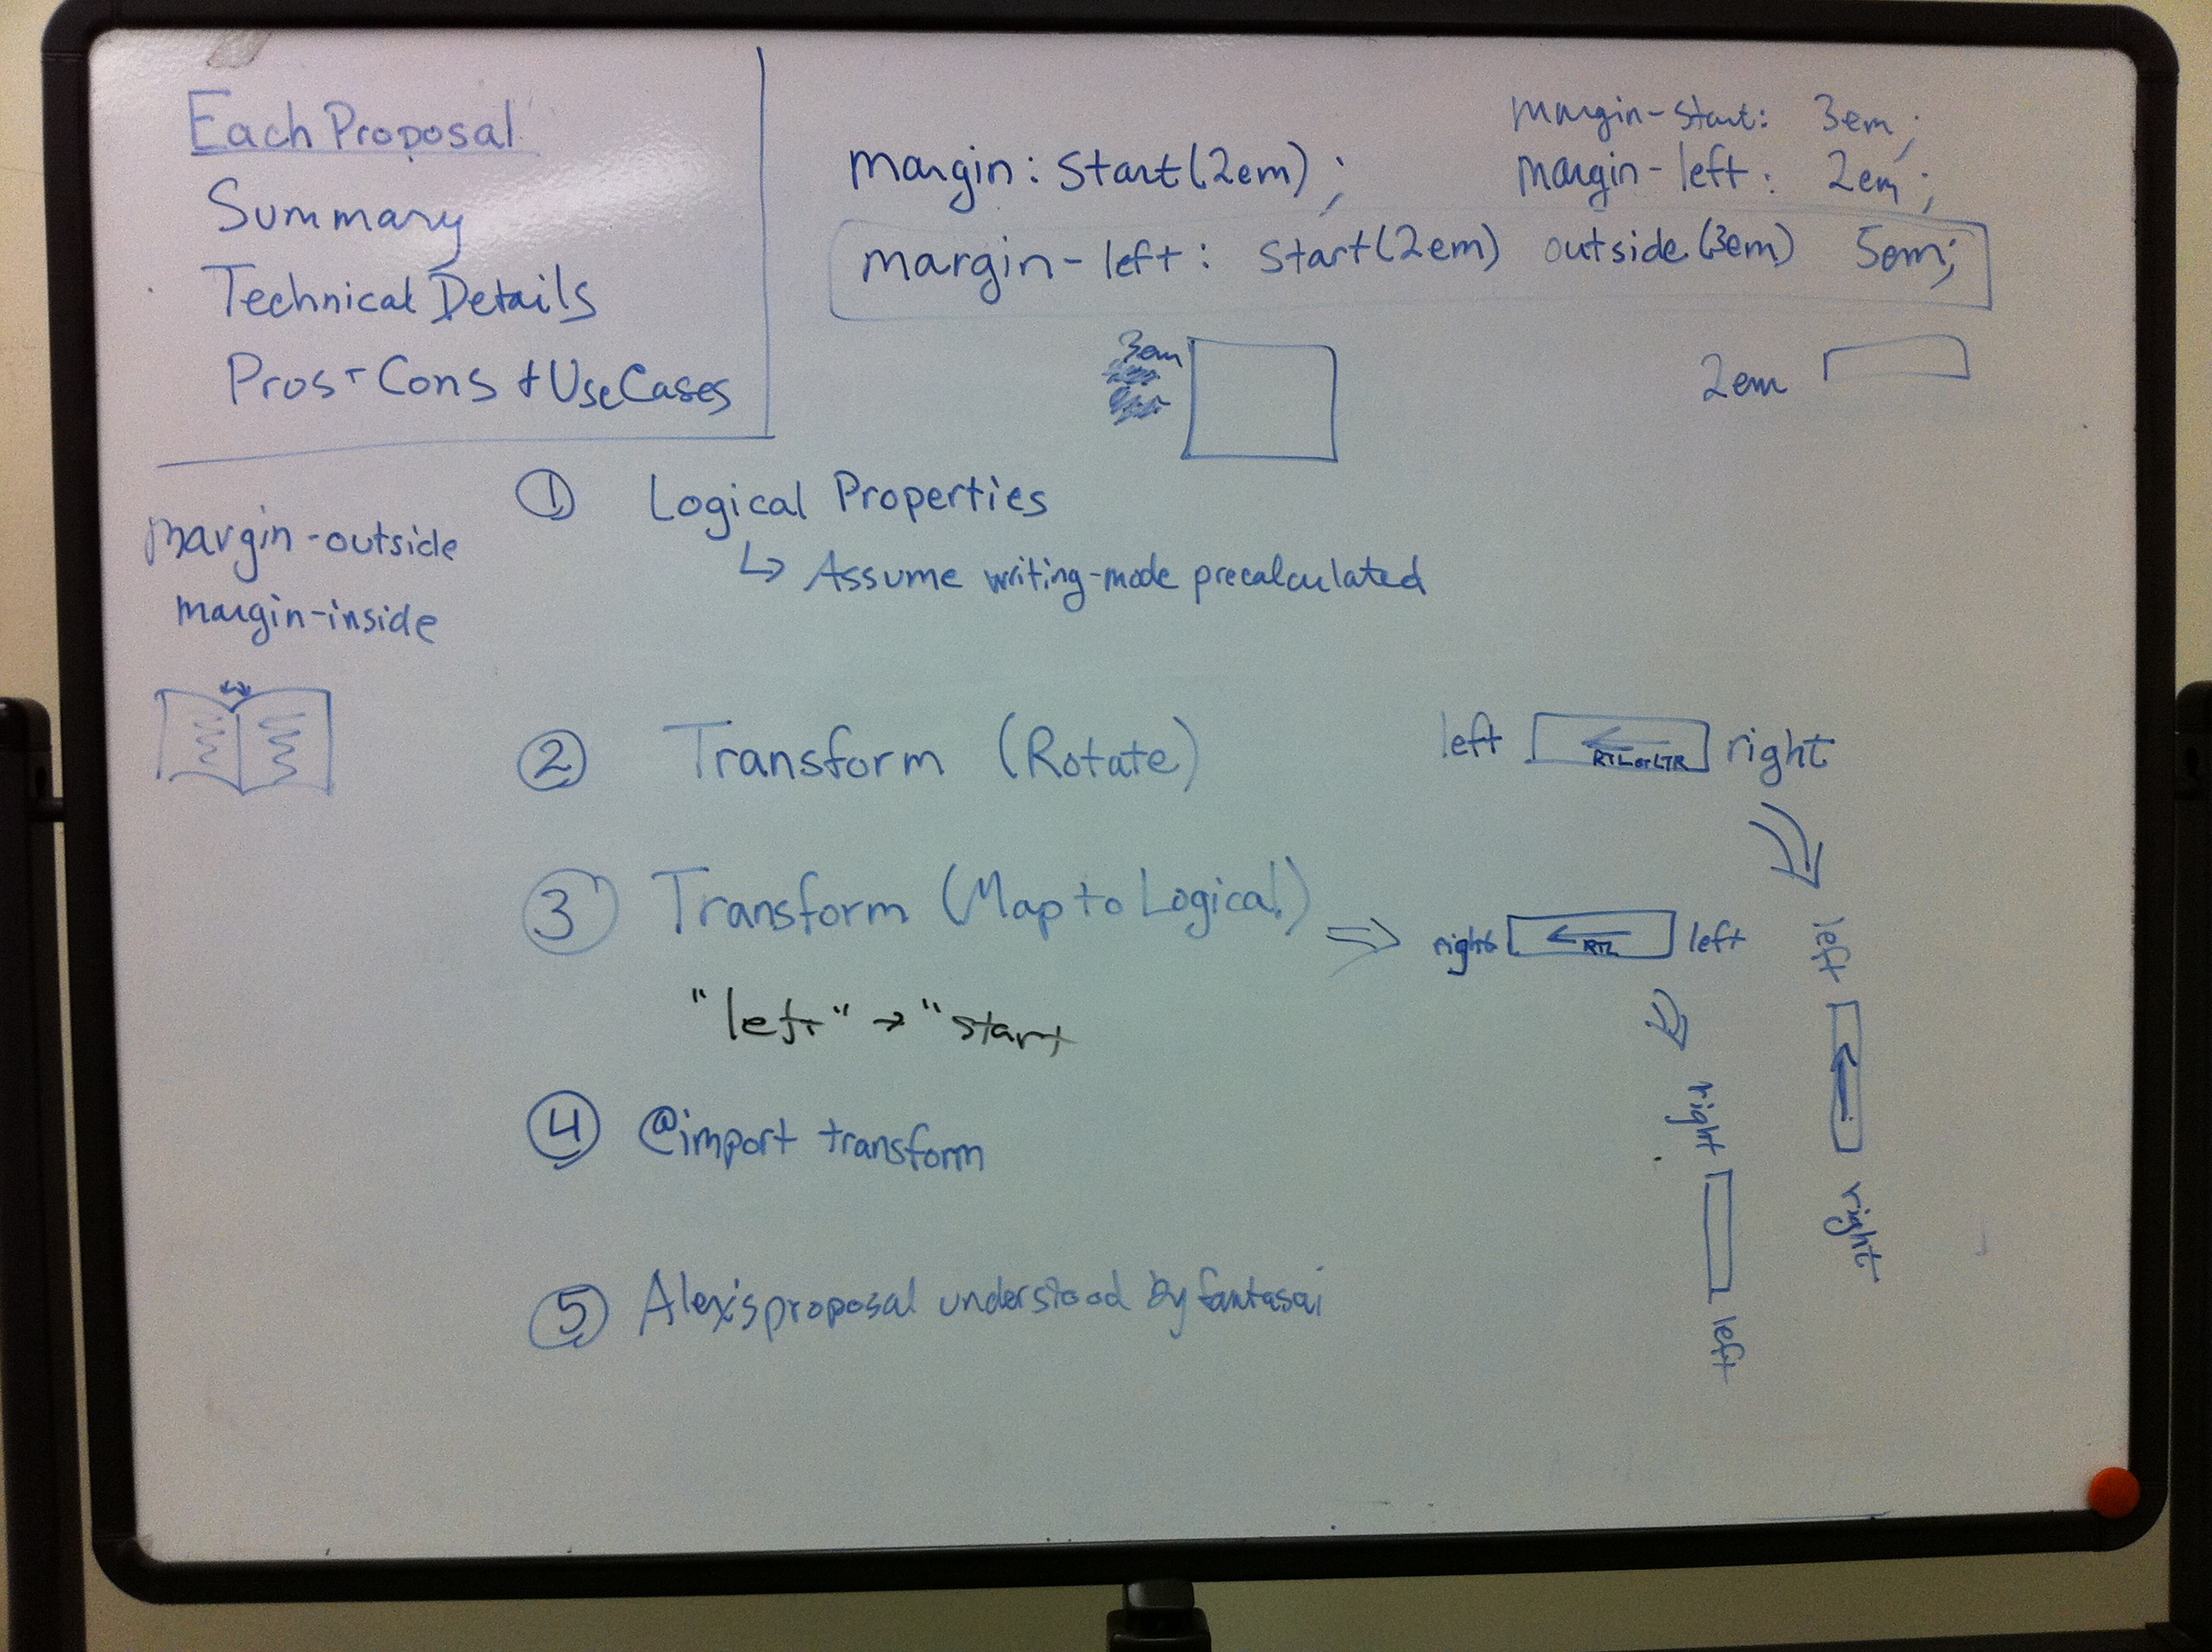 Each Proposal
Summary
Technical Details
Pros + Cons + Use Cases
margin: start(2em);
margin-start: 3em;
margin-left: 2em;
margin-left: start(2em) outside(3em) 5em;
3em
2em
margin-outside
margin-inside
① Logical Properties
↳ Assume writing-mode precalculated
② Transform (Rotate)
left RTL or LTR right
left right
③ Transform (Map to Logical)
⇒ right RTL left
right left
"left" → "start
④ @import transform
⑤ Alex's proposal understood by fantasai